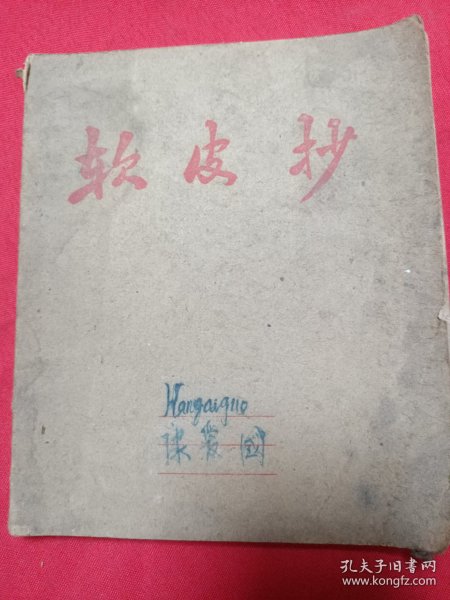 软皮抄
Wangaiguo
孔夫子旧书网
www.kongfz.com